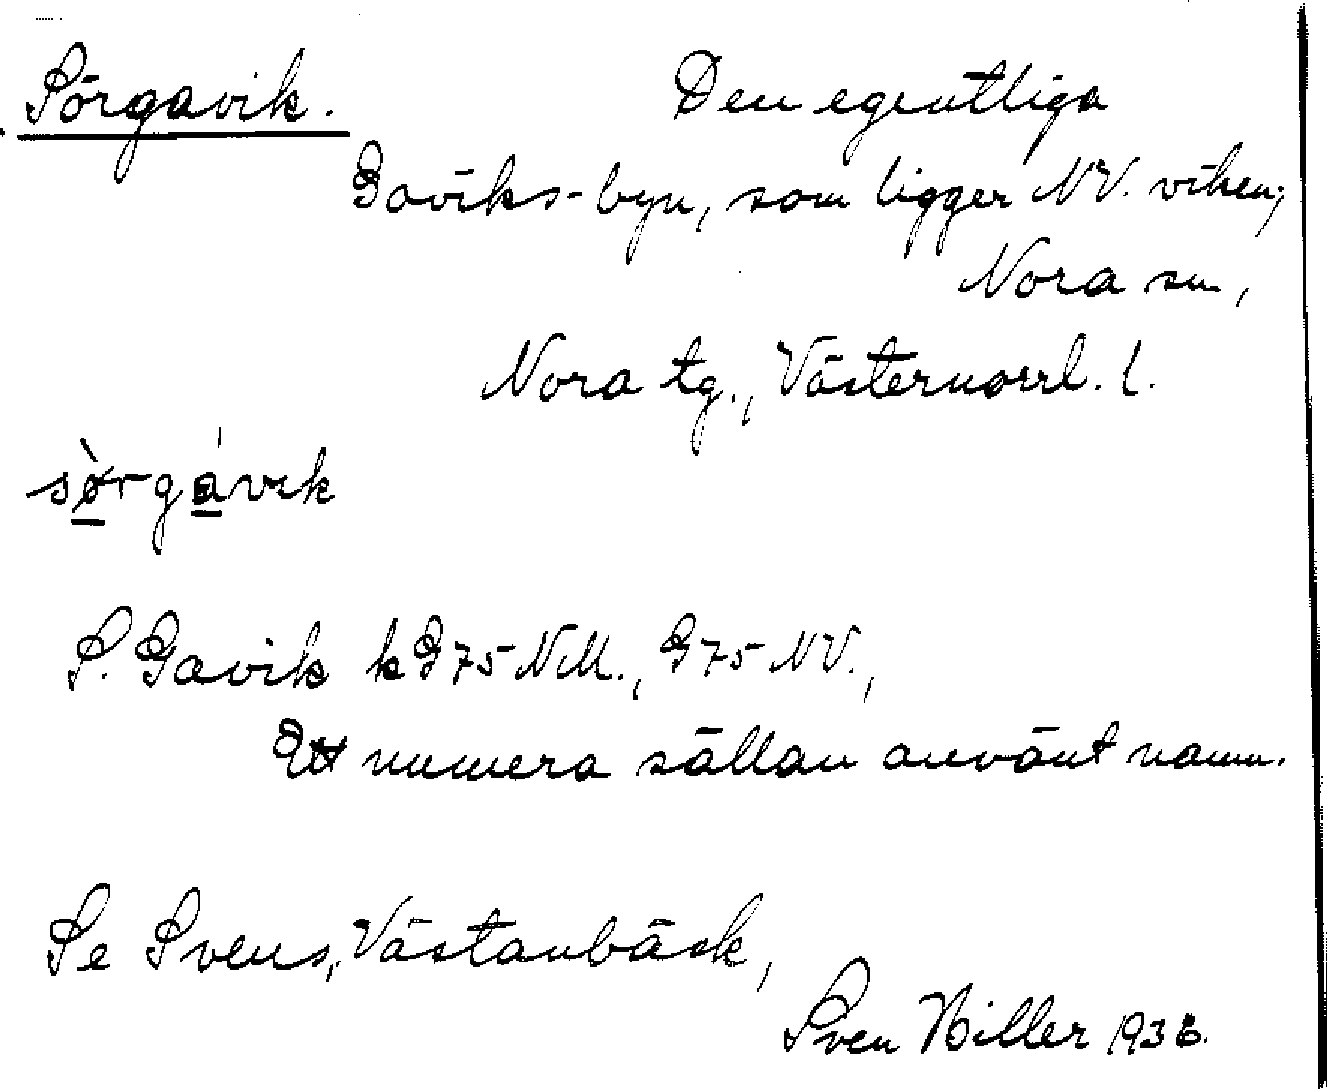 Sörgavik. Den egentliga
Gaviks-byn, som ligger NV. viken;
Nora sn,
Nora tg., Västernorrl. l.
sø̀rgávik
S. Gavik k G75 NM., G75 NV.,
Ett numera sällan använt namn.
Se Svens, Västanbäck,
Sven Hiller 1938.